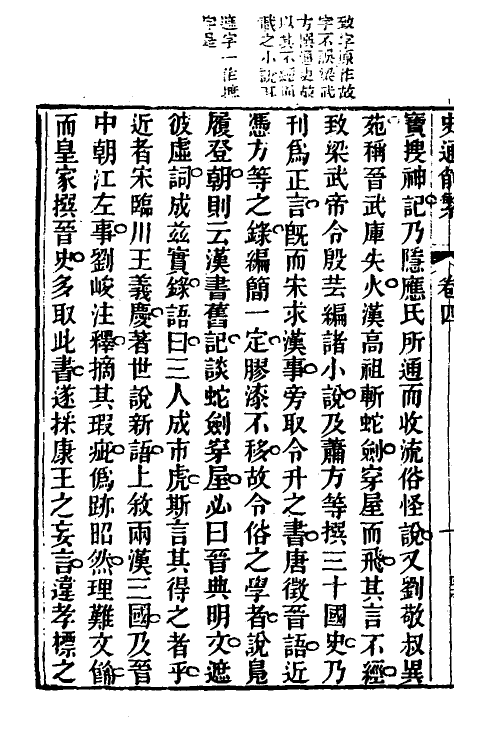 致字原作故
字不誤梁武
方撰通史故
以其不經而
載之小說耳
遮字一作撫
字是
史通削繁 卷四
寶搜神記乃隱應氏所通而收流俗怪說又劉敬叔異
苑稱晉武庫失火漢高祖斬蛇劍穿屋而飛其言不經
致梁武帝令殷芸編諸小說及蕭方等撰三十國史乃
刊為正言既而宋求漢事旁取令升之書唐徵晉語近
憑方等之錄編簡一定膠漆不移故令俗之學者說鳧
履登朝則云漢書舊記談蛇劍穿屋必曰晉典明文遮
彼虛詞成茲實錄語曰三人成市虎斯言其得之者乎
近者宋臨川王義慶著世說新語上敘兩漢三國及晉
中朝江左事劉峻注釋摘其瑕疵偽跡昭然理難文飾
而皇家撰晉史多取此書遂採康王之妄言違孝標之